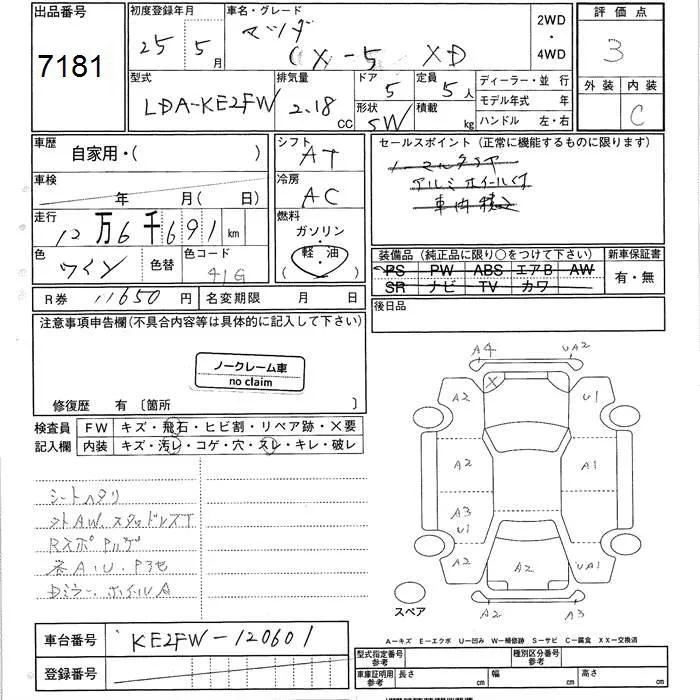 出品番号
7181
初度登録年月
25年5月
車名・グレード
マツダ
CX-5 XD
2WD
・
4WD
評価点
3
外装 内装
C
型式
LDA-KE2FW
排気量
2.18
CC
ドア
5
定員
5人
形状
SW
積載
kg
ディーラー・並行
モデル年式 年
ハンドル 左・右
車歴
自家用・( )
シフト
AT
セールスポイント(正常に機能するものに限ります)
ノーマルタイヤ
アルミホイール付
車内積込
車検
年 月( 日)
冷房
AC
走行
12万6千691km
燃料
ガソリン
・
(軽・油)
色
ワイン
色替
色コード
41G
装備品(純正品に限り○をつけて下さい)
PS PW ABS エアB AW
SR ナビ TV カワ
新車保証書
有・無
R券 11650円
名変期限 月 日
後日品
注意事項申告欄(不具合内容等は具体的に記入して下さい)
ノークレーム車
no claim
修復歴 有〔箇所 〕
検査員
記入欄
FW キズ・飛石・ヒビ割・リペア跡・X要
内装 キズ・汚レ・コゲ・穴・スレ・キレ・破レ
シートヘタリ
外AW スタッドレスT
Rスポ
各A・U・P3セ
Dミラー ホイルA
A4 UA2
X
A2 U1
A2 A1
A3
U1
A2 A2 UA1
A2 A3
スペア
A-キズ E-エクボ U-凹み W-補修跡 S-サビ C-腐食 XX-交換済
車台番号
KE2FW-120601
登録番号
型式指定番号
参考
種別区分番号
参考
車庫証明用
参考
長さ cm
幅 cm
高さ cm